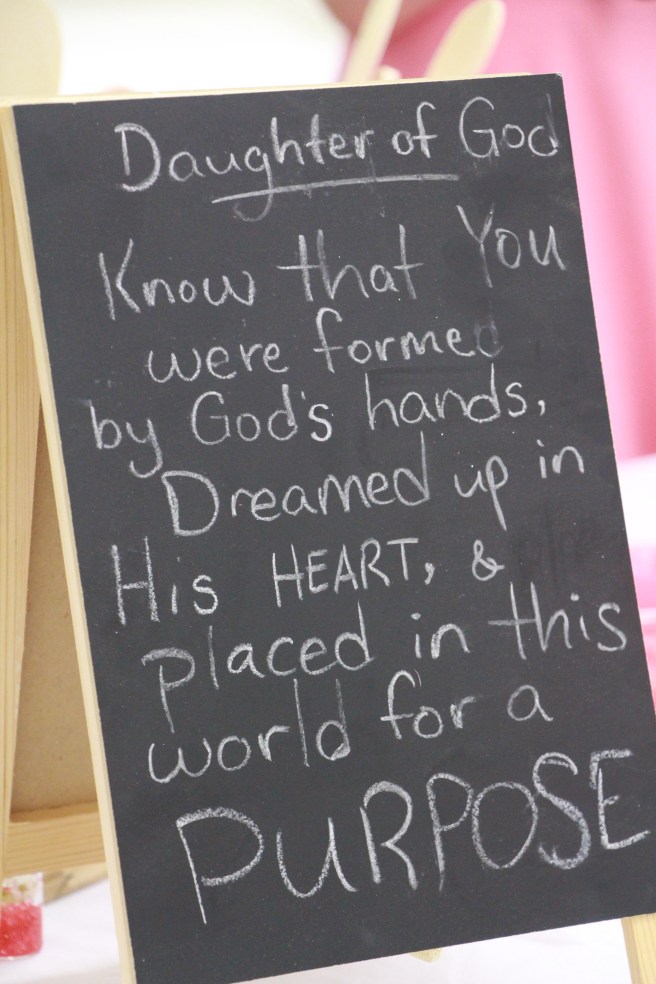 Daughter of God
Know that You
were formed
by God's hands,
Dreamed up in
His HEART, &
placed in this
world for a
PURPOSE